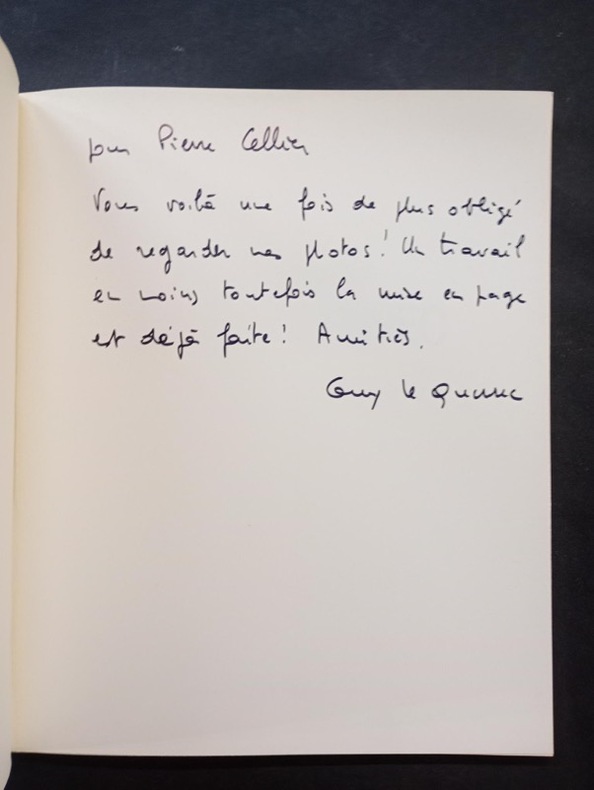 pour Pierre Cellier
Vous voilà une fois de plus obligé
de regarder mes photos! Un travail
en moins toutefois la mise en page
est déjà faite! Amitiés.
Guy Le Querrec